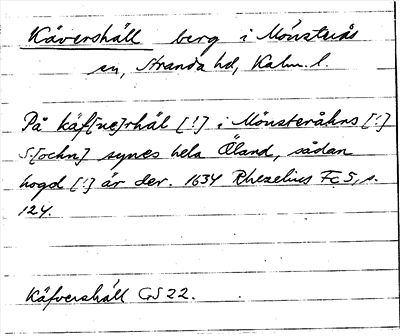 Kävershäll berg i Mönsterås
sn, Stranda hd, Kalm. l.
På käf[ne]rhäl [!] i Mönsteråhns [!]
S[ochn] synes hela Öland, sådan
hogd [!] är der. 1634 Rhezelius Fc 5, s.
124.
Käfvershäll GS 22.